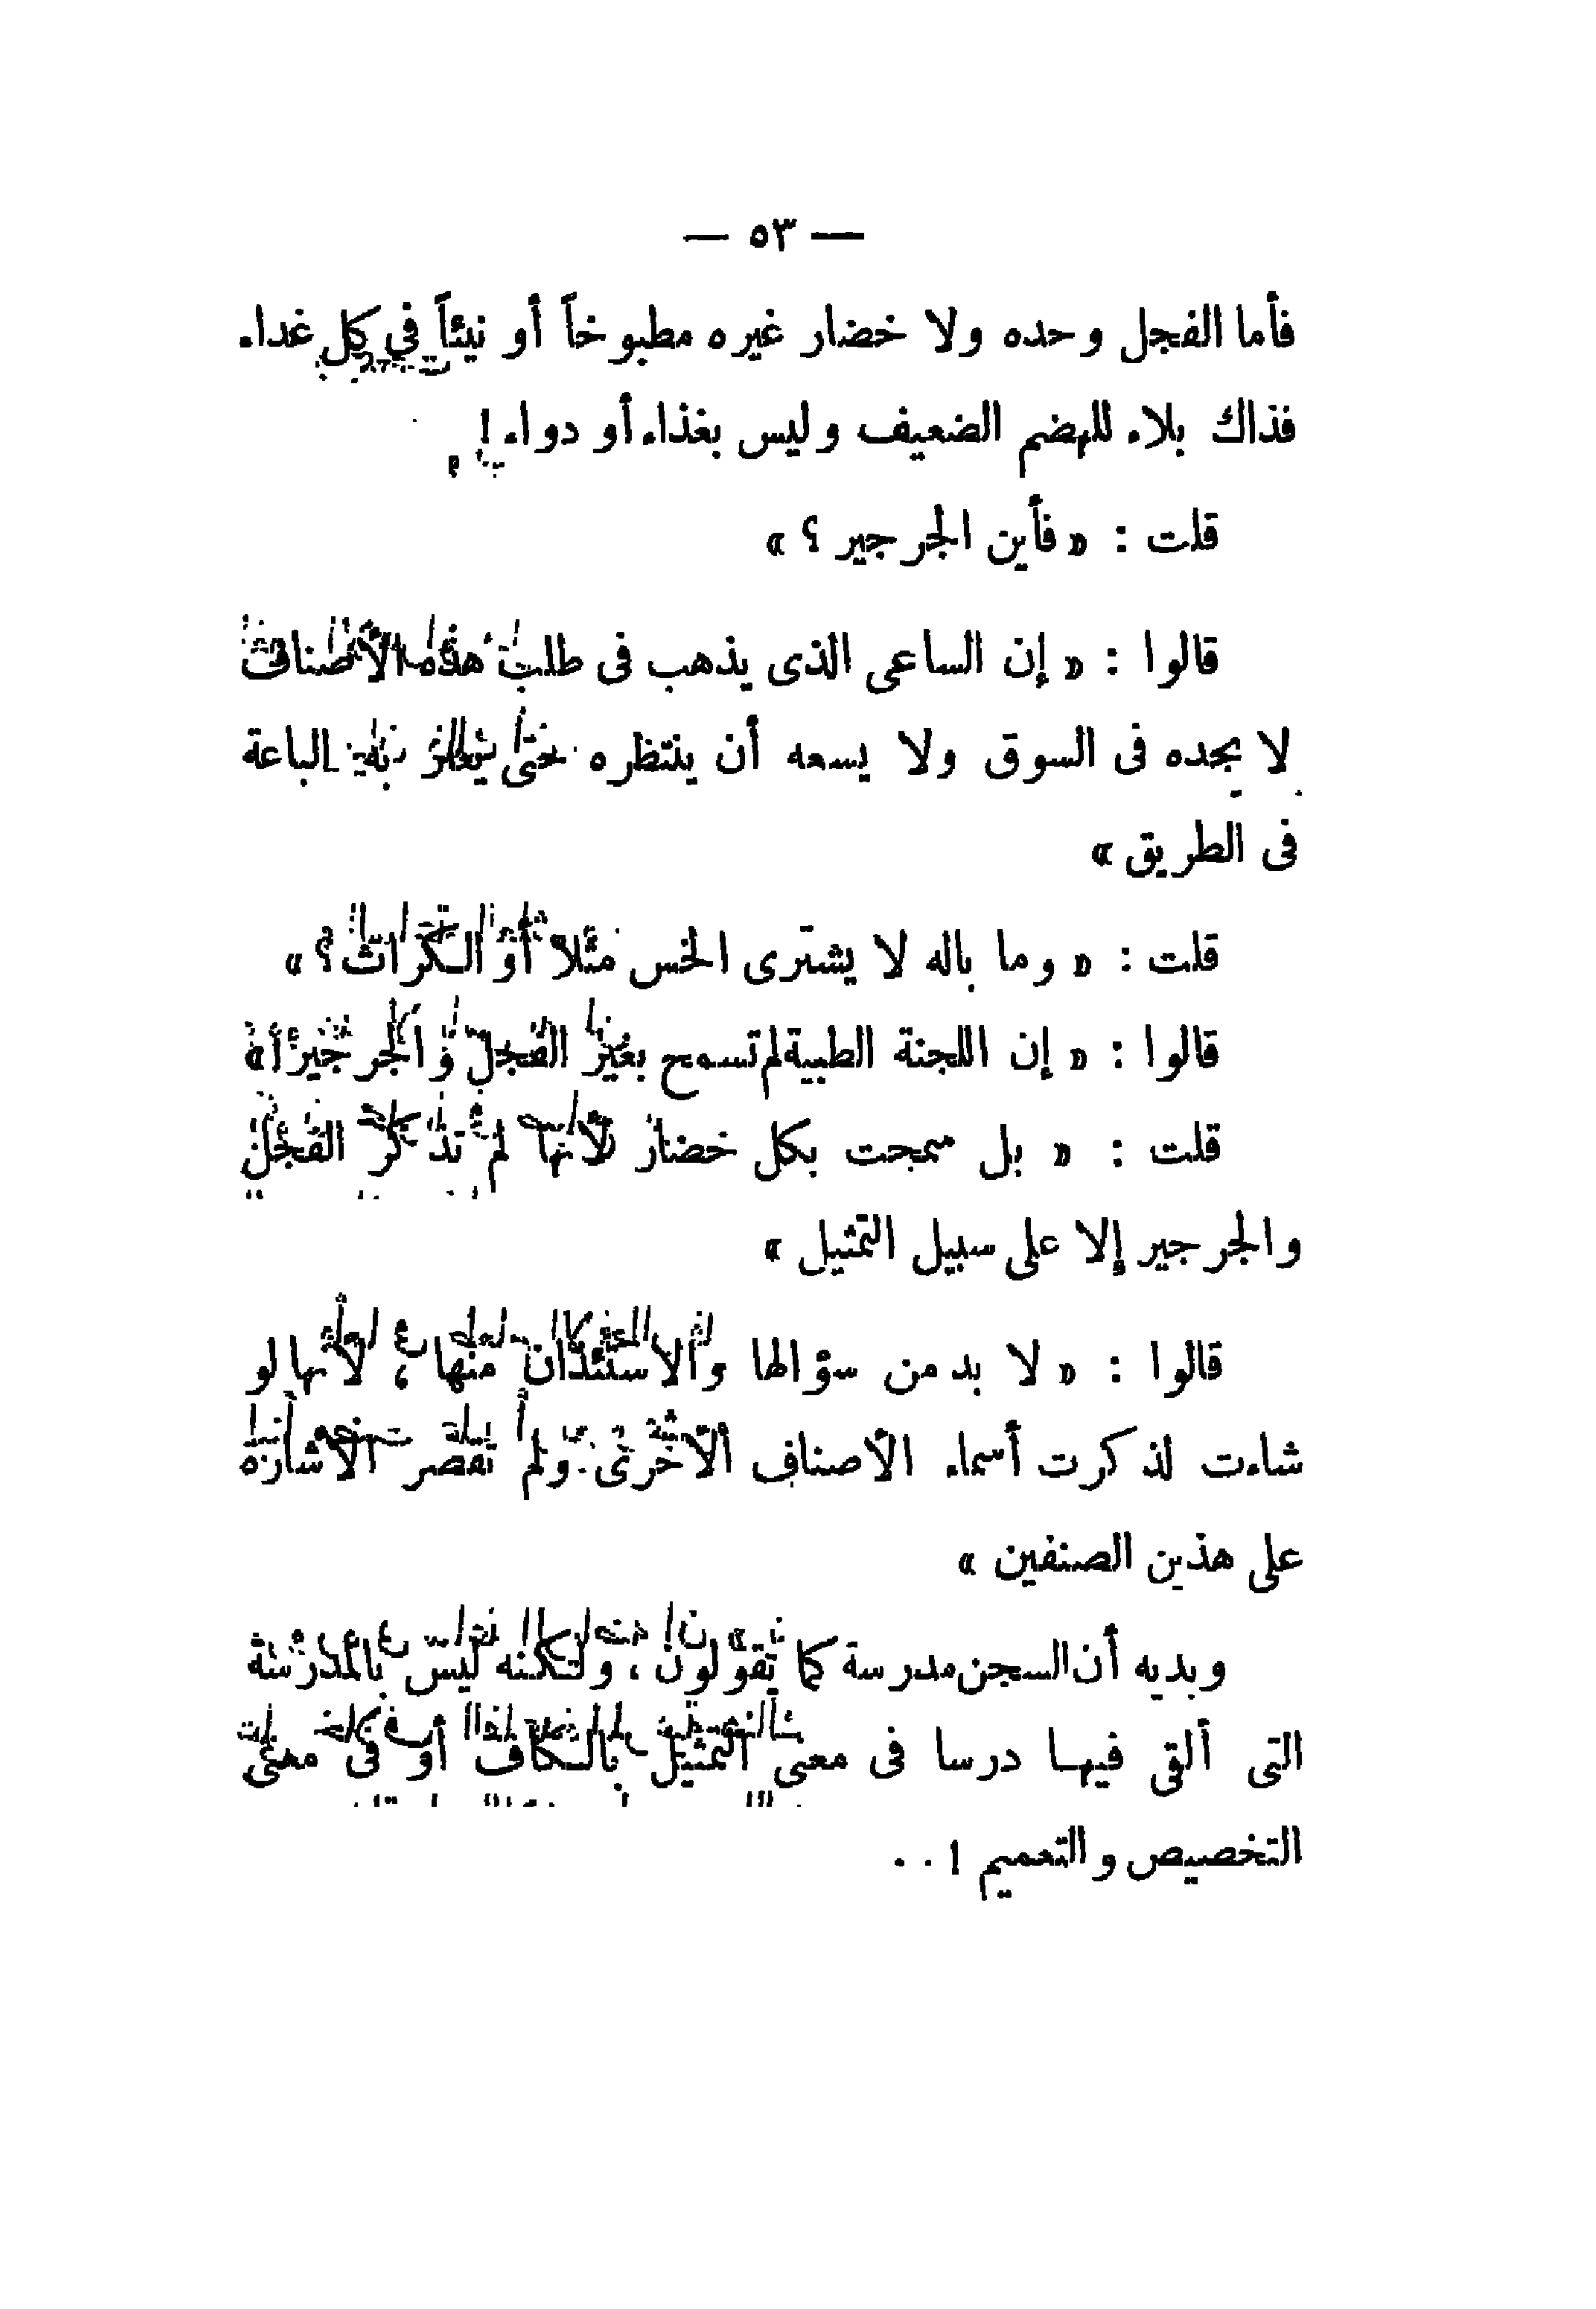 — ٥٣ —
فأما الفجل وحده ولا خضار غيره مطبوخاً أو نيئاً في كل غداء
فذاك بلاء للهضم الضعيف وليس بغذاء أو دواء !
قلت : « فأين الجرجير ؟ »
قالوا : « إن الساعى الذى يذهب فى طلب هذه الأصناف
لا يجده فى السوق ولا يسعه أن ينتظره حتى يعثر به الباعة
فى الطريق »
قلت : « وما باله لا يشترى الخس مثلا أو الكراث ؟ »
قالوا : « إن اللجنة الطبية لم تسمح بغير الفجل والجرجير ! »
قلت : « بل سمحت بكل خضار لأنها لم تذكر الفجل
والجرجير إلا على سبيل التمثيل »
قالوا : « لا بد من سؤالها والاستئذان منها ، لأنها لو
شاءت لذكرت أسماء الأصناف الأخرى ولم تقصر الاشارة
على هذين الصنفين »
وبديه أن السجن مدرسة كما يقولون ، ولكنه ليس بالمدرسة
التى ألقى فيها درسا فى معنى التمثيل بالكاف أو فى معنى
التخصيص والتعميم ! ..